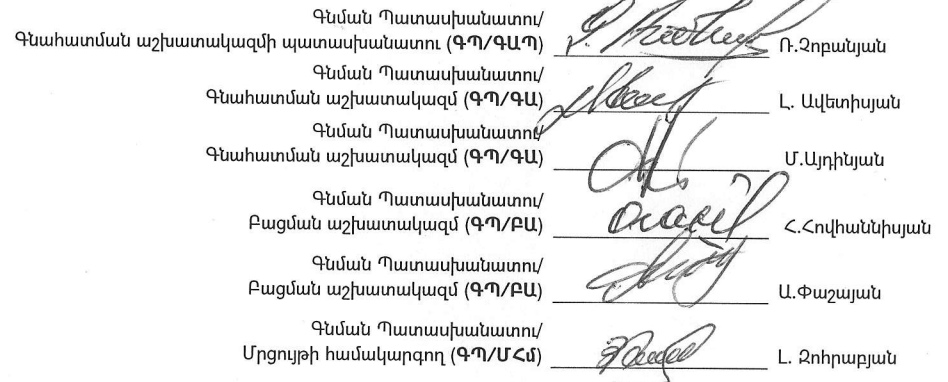 Գնման Պատասխանատու/
Գնահատման աշխատակազմի պատասխանատու (ԳՊ/ԳԱՊ) Ռ.Չոբանյան
Գնման Պատասխանատու/
Գնահատման աշխատակազմ (ԳՊ/ԳԱ) Լ. Ավետիսյան
Գնման Պատասխանատու/
Գնահատման աշխատակազմ (ԳՊ/ԳԱ) Մ.Այդինյան
Գնման Պատասխանատու/
Բացման աշխատակազմ (ԳՊ/ԲԱ) Հ.Հովհաննիսյան
Գնման Պատասխանատու/
Բացման աշխատակազմ (ԳՊ/ԲԱ) Ա.Փաշայան
Գնման Պատասխանատու/
Մրցույթի համակարգող (ԳՊ/ՄՀմ) Լ. Զոհրաբյան